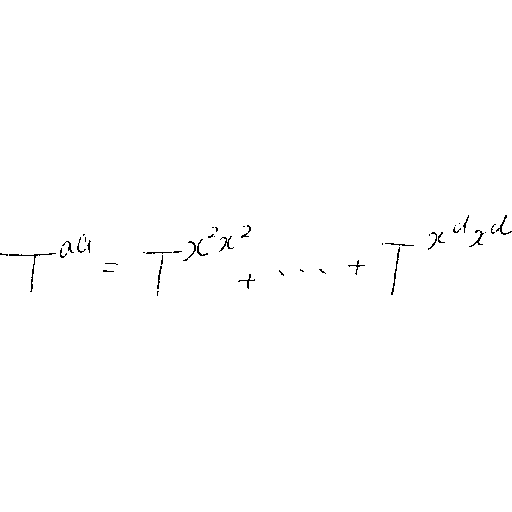 T^{aa} = T^{x^2 x^2} + \cdots + T^{x^d x^d}